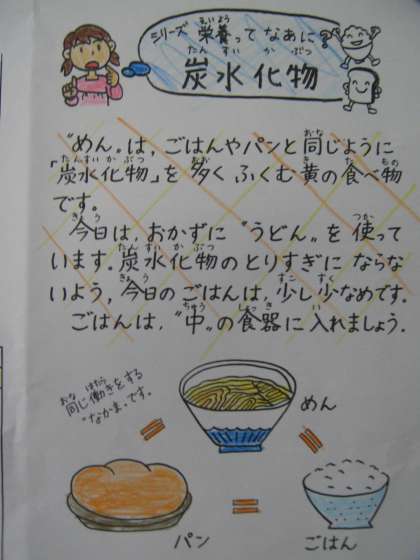 シリーズ 栄養ってなあに？
炭水化物
"めん"は，ごはんやパンと同じように
「炭水化物」を多くふくむ黄の食べ物
です。
今日は，おかずに"うどん"を使って
います。炭水化物のとりすぎにならな
いよう，今日のごはんは，少し少なめです。
ごはんは，"中"の食器に入れましょう。
同じ働きをする
"なかま"です。
めん
パン
ごはん